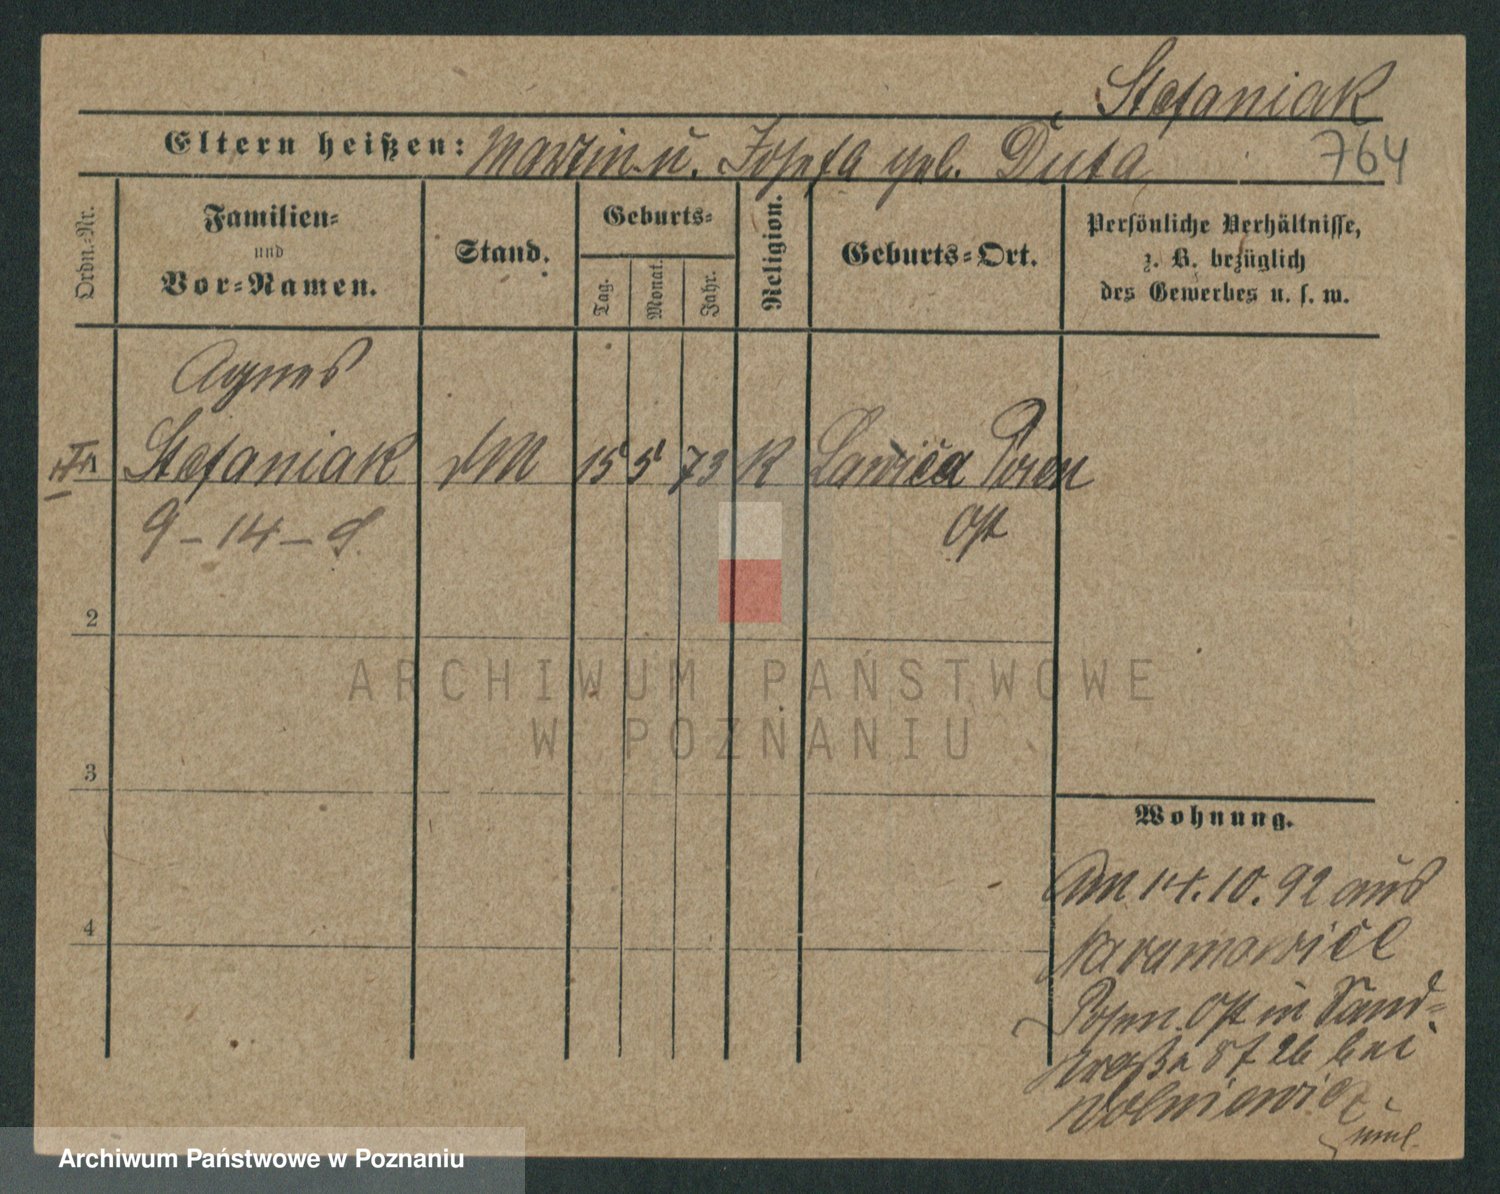 Stefaniak
Eltern heißen: Martin u. Josefa geb. Duta
764
Ordn.-Nr.
Familien-
und
Vor-Namen.
Stand.
Geburts-
Tag.
Monat.
Jahr.
Religion.
Geburts-Ort.
Persönliche Verhältnisse,
z. B. bezüglich
des Gewerbes u. s. w.
Agnes
Stefaniak DM 15 5 73 K Lawica Posen
Ost
9-14-
2
3
4
Wohnung.
Am 14.10.92 aus
Naramowice
Posen Ost in Sand-
straße 8 bei
Wolniewicz
ARCHIWUM PAŃSTWOWE
W POZNANIU
Archiwum Państwowe w Poznaniu